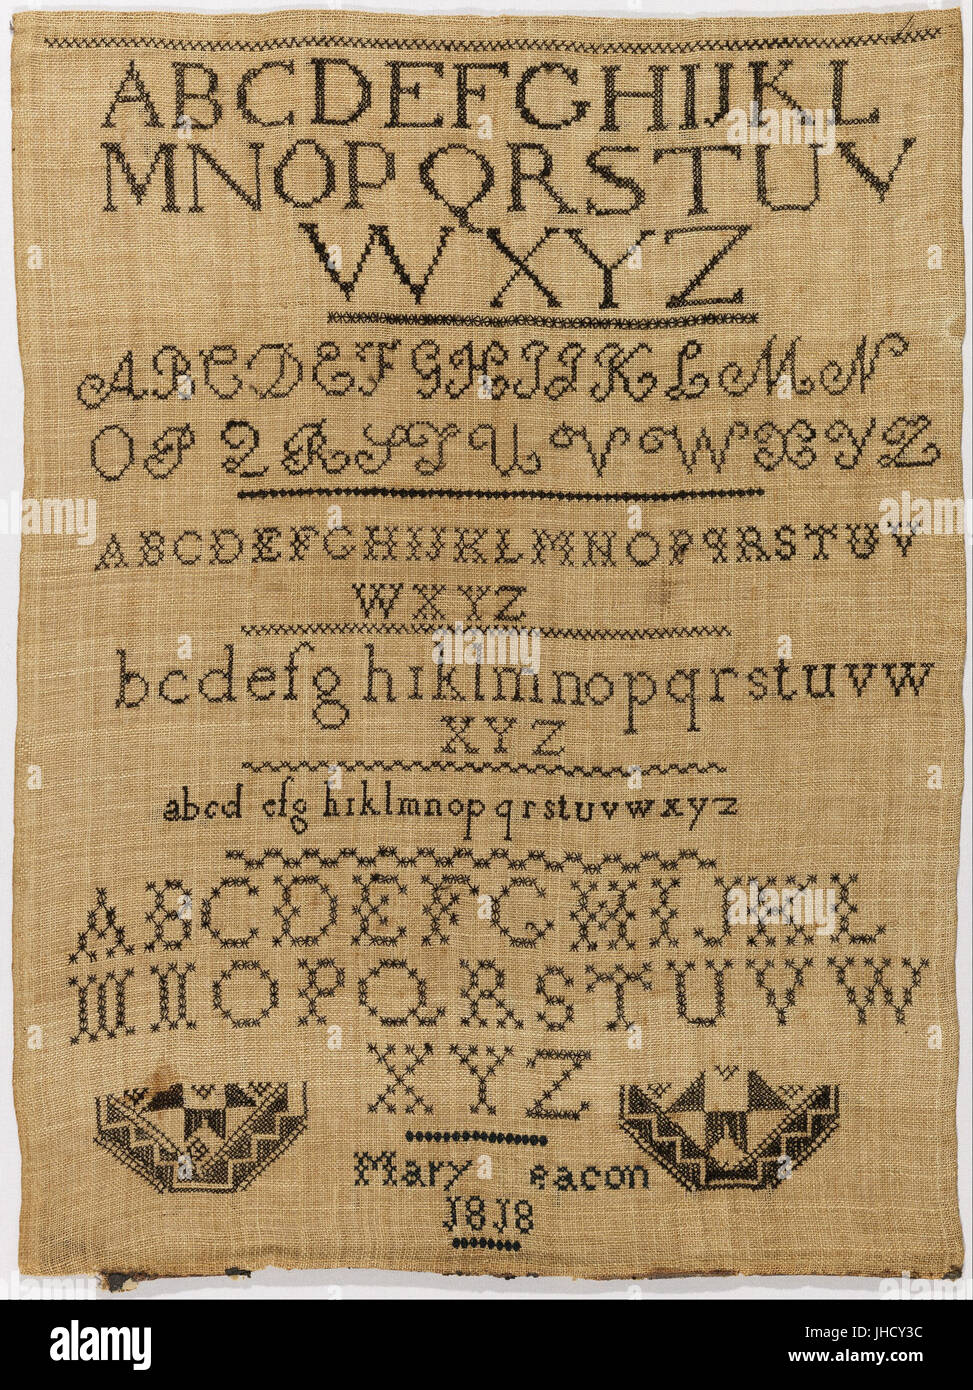 ABCDEFGHIJKL
MNOPQRSTUV
WXYZ
ABCDEFGHIJKLMN
OPQRSTUVWXYZ
ABCDEFGHIJKLMNOPQRSTUV
WXYZ
bcdefghıklmnopqrstuvw
XYZ
abcd efg hıklmnopqrstuvwxyz
ABCDEFGHIJKL
MNOPQRSTUVW
XYZ
Mary
1818
alamy stock photo
JHCY3C
www.alamy.com